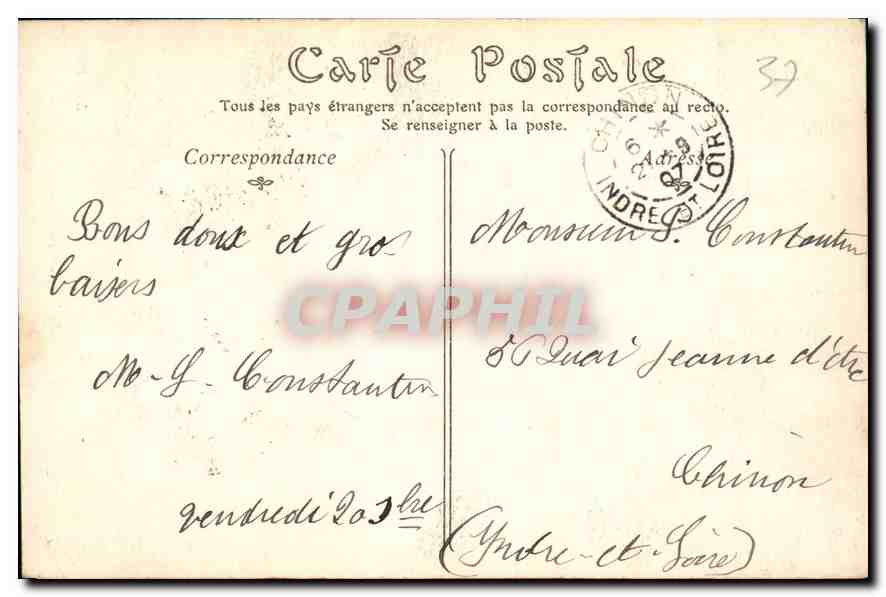 Carte Postale
37
Tous les pays étrangers n'acceptent pas la correspondance au recto.
Se renseigner à la poste.
Correspondance
Adresse
CHINON
INDRE ET LOIRE
07
Bons doux et gros
baisers
M-L- Constantin
vendredi 20 bre
Monsieur L. Constantin
Quai Jeanne d'Arc
Chinon
(Yndre-et-Loire)
CPAPHIL